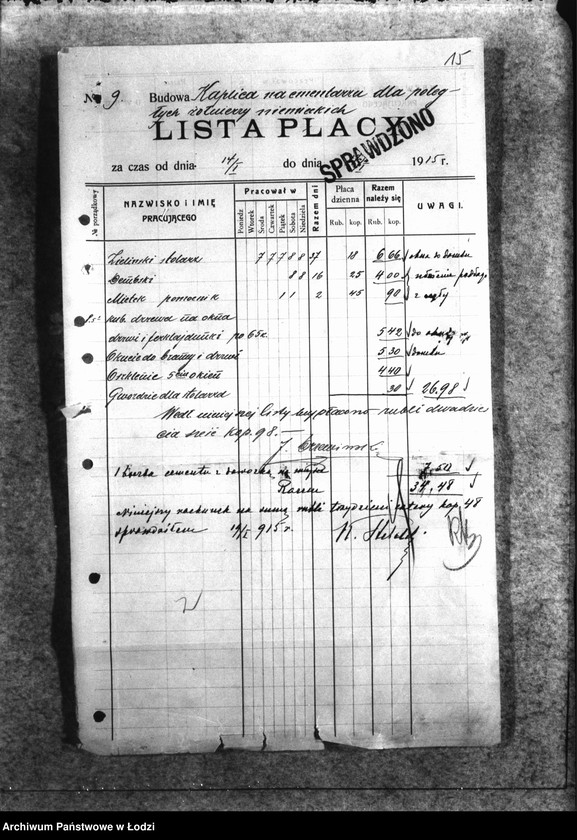 15
№ 9. Budowa Kaplica na cmentarzu dla poleg-
łych żołnierzy niemieckich
LISTA PŁACY
SPRAWDZONO
za czas od dnia 14/I do dnia 1915 r.
№ porządkowy
NAZWISKO i IMIĘ PRACUJĄCEGO
Pracował w
Poniedz. Wtorek Środa Czwartek Piątek Sobota Niedziela
Razem dni
Płaca dzienna
Rub. kop.
Razem należy się
Rub. kop.
UWAGI.
Zieliński stolarz 7 7 7 8 8 37 18 6 66 okna do
Dembski 8 8 16 25 4 00
Mielek pomocnik 1 1 2 45 90 z cegły
kub. drzewa na okna
drzwi i po 65 k. 5 42 do
Okucie do bramy i drzwi 5 30
Oszklenie 5 okien 4 40
Gwoździe dla stolarza 30 26.98
Wedł. niniejszej listy wypłacono rubli dwadzie
cia sześć kop. 98.
1 beczka cementu z dowozką 7.50
Razem 34.48
Niniejszy rachunek na sumę rubli trzydzieści cztery kop. 48
sprawdziłem 19/I 915 r. K.
Archiwum Państwowe w Łodzi